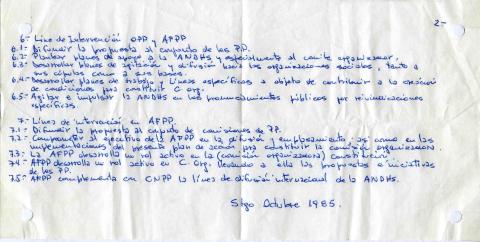 2-
6.- Línea de Intervención OPP y AFPP
6.1- Difundir la propuesta al conjunto de los P.P.
6.2- Plantear planes de apoyo a la ANDHS y especialmente al comité organizador.
6.3- Desarrollar planes de agitación y difusión hacia las organizaciones sociales, tanto a
sus cúpulas como a sus bases.
6.4- Desarrollar planes de trabajo y líneas específicas a objeto de contribuir a la creación
de condiciones para constituir C. Org.
6.5- Agitar e impulsar la ANDHS en los pronunciamientos públicos por reivindicaciones
específicas.
7.- Línea de intervención en AFPP.
7.1- Difundir la propuesta al conjunto de comisiones de P.P.
7.2- Comprometer al ejecutivo de la AFPP en la difusión y emplazamiento; así como en las
implementaciones del presente plan de acción para constituir la comisión organizadora.
7.3- La AFPP desarrolla un rol activo en la (comisión organizadora) constitución
7.4- AFPP desarrolla un rol activo en C. Org. llevando a ella las propuestas e iniciativas
de los P.P.
7.5- AFPP complementa con CNPP la línea de difusión internacional de la ANDHS.
Stgo Octubre 1985.